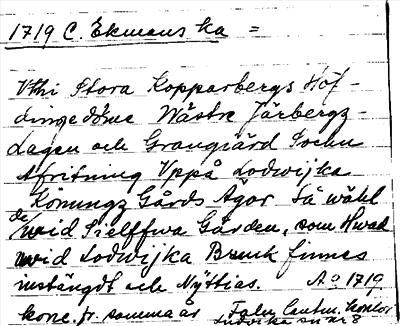 1719 C. Ekmans ka =
Uthi Stora Kopparbergs Höf-
dingedöme Wästre Järbergz-
Lagen och Grangiärd Sochn
Afritning Uppå Lodwijka
Konungz Gårds Ägor Så wähl
de wid Sielffwa Gården, som Hwad
wid Lodwijka Bruuk finnes
instängdt och Nyttias. Ao 1719
konc. fr. samma år Falu Lantm. kontor
Ludvika sn n:o 8